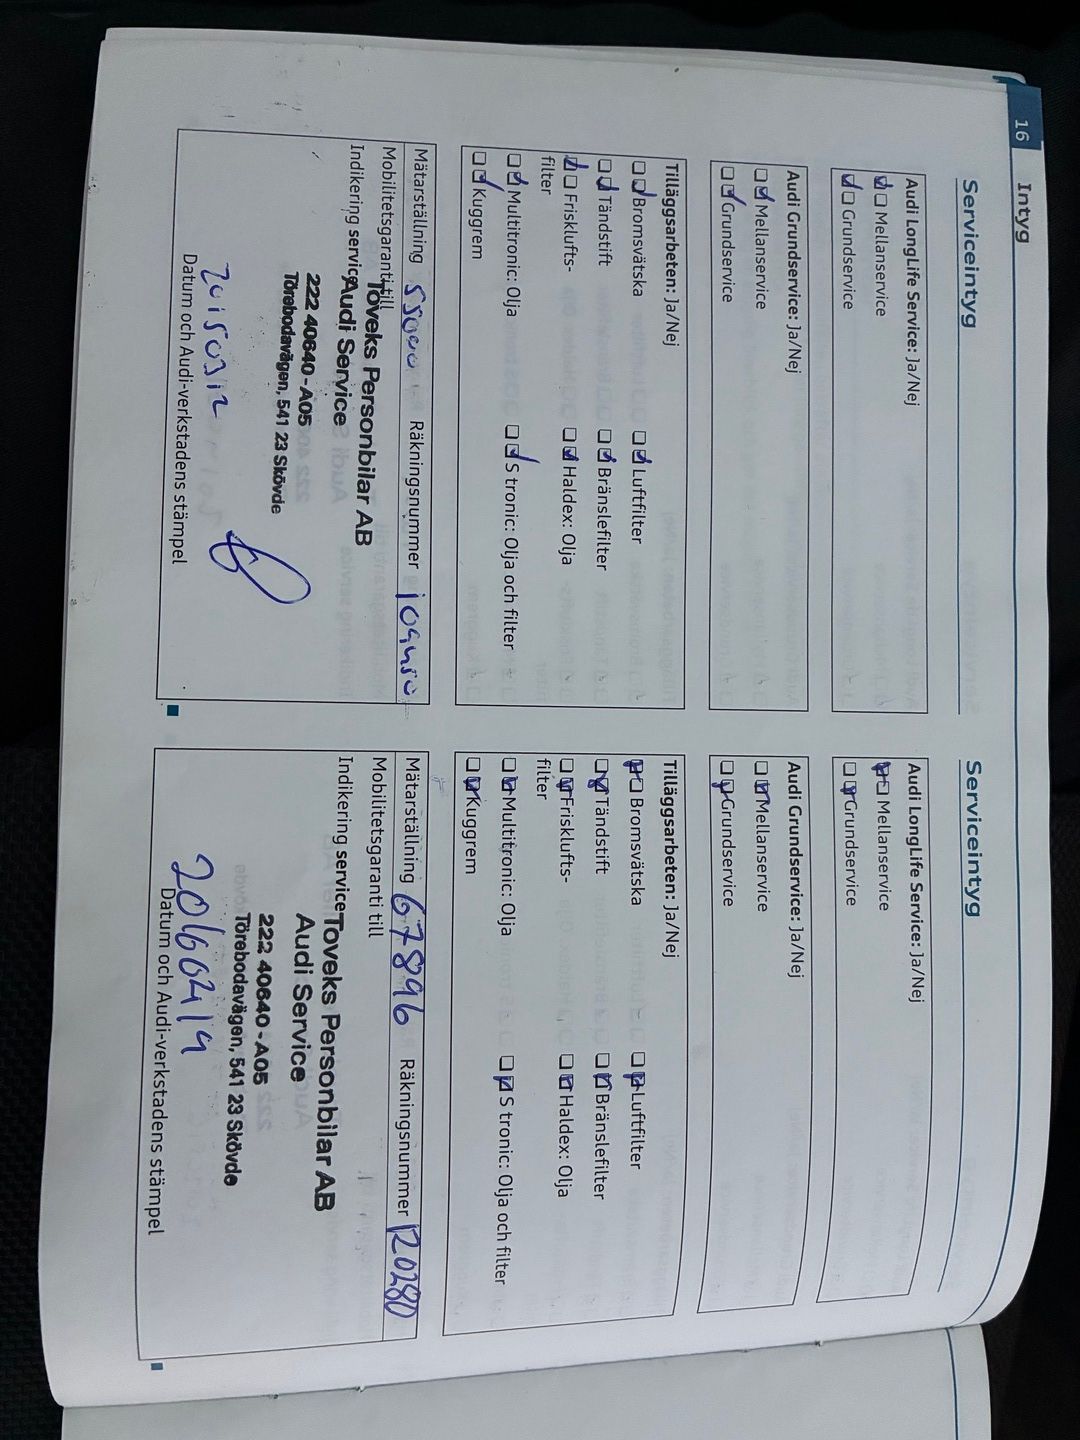 16 Intyg
Serviceintyg
Audi LongLife Service: Ja/Nej
Mellanservice
Grundservice
Audi Grundservice: Ja/Nej
Mellanservice
Grundservice
Tilläggsarbeten: Ja/Nej
Bromsvätska Luftfilter
Tändstift Bränslefilter
Frisklufts- Haldex: Olja
filter
Multitronic: Olja S tronic: Olja och filter
Kuggrem
Mätarställning Räkningsnummer
Mobilitetsgaranti till
Toveks Personbilar AB
Indikering service
Audi Service
222 40640-A05
Törebodavägen, 541 23 Skövde
20150312
Datum och Audi-verkstadens stämpel
Serviceintyg
Audi LongLife Service: Ja/Nej
Mellanservice
Grundservice
Audi Grundservice: Ja/Nej
Mellanservice
Grundservice
Tilläggsarbeten: Ja/Nej
Bromsvätska Luftfilter
Tändstift Bränslefilter
Frisklufts- Haldex: Olja
filter
Multitronic: Olja S tronic: Olja och filter
Kuggrem
Mätarställning 67896 Räkningsnummer 120280
Mobilitetsgaranti till
Indikering service Toveks Personbilar AB
Audi Service
222 40640-A05
Törebodavägen, 541 23 Skövde
20160419
Datum och Audi-verkstadens stämpel